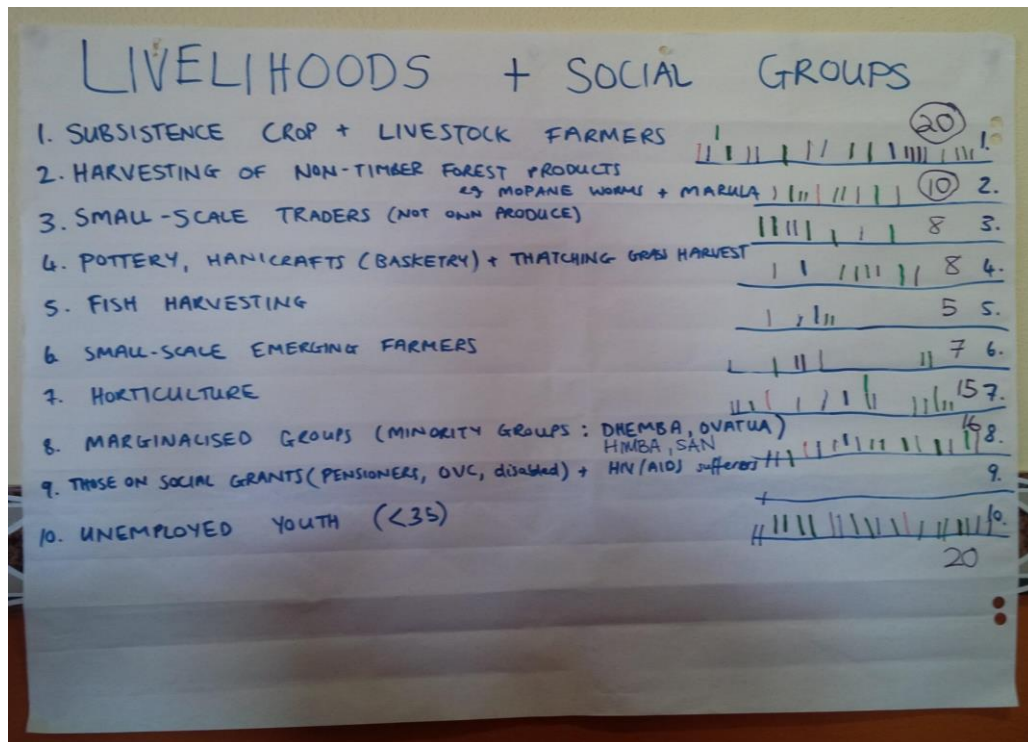 LIVELIHOODS + SOCIAL GROUPS
1. SUBSISTENCE CROP + LIVESTOCK FARMERS 20 1.
2. HARVESTING OF NON-TIMBER FOREST PRODUCTS
eg MOPANE WORMS + MARULA 10 2.
3. SMALL-SCALE TRADERS (NOT OWN PRODUCE) 8 3.
4. POTTERY, HANICRAFTS (BASKETRY) + THATCHING GRASS HARVEST 8 4.
5. FISH HARVESTING 5 5.
6 SMALL-SCALE EMERGING FARMERS 7 6.
7. HORTICULTURE 15 7.
8. MARGINALISED GROUPS (MINORITY GROUPS : DHEMBA, OVATUA) 16 8.
HIMBA, SAN
9. THOSE ON SOCIAL GRANTS (PENSIONERS, OVC, disabled) + HIV/AIDS sufferers 9.
10. UNEMPLOYED YOUTH (<35) 10.
20